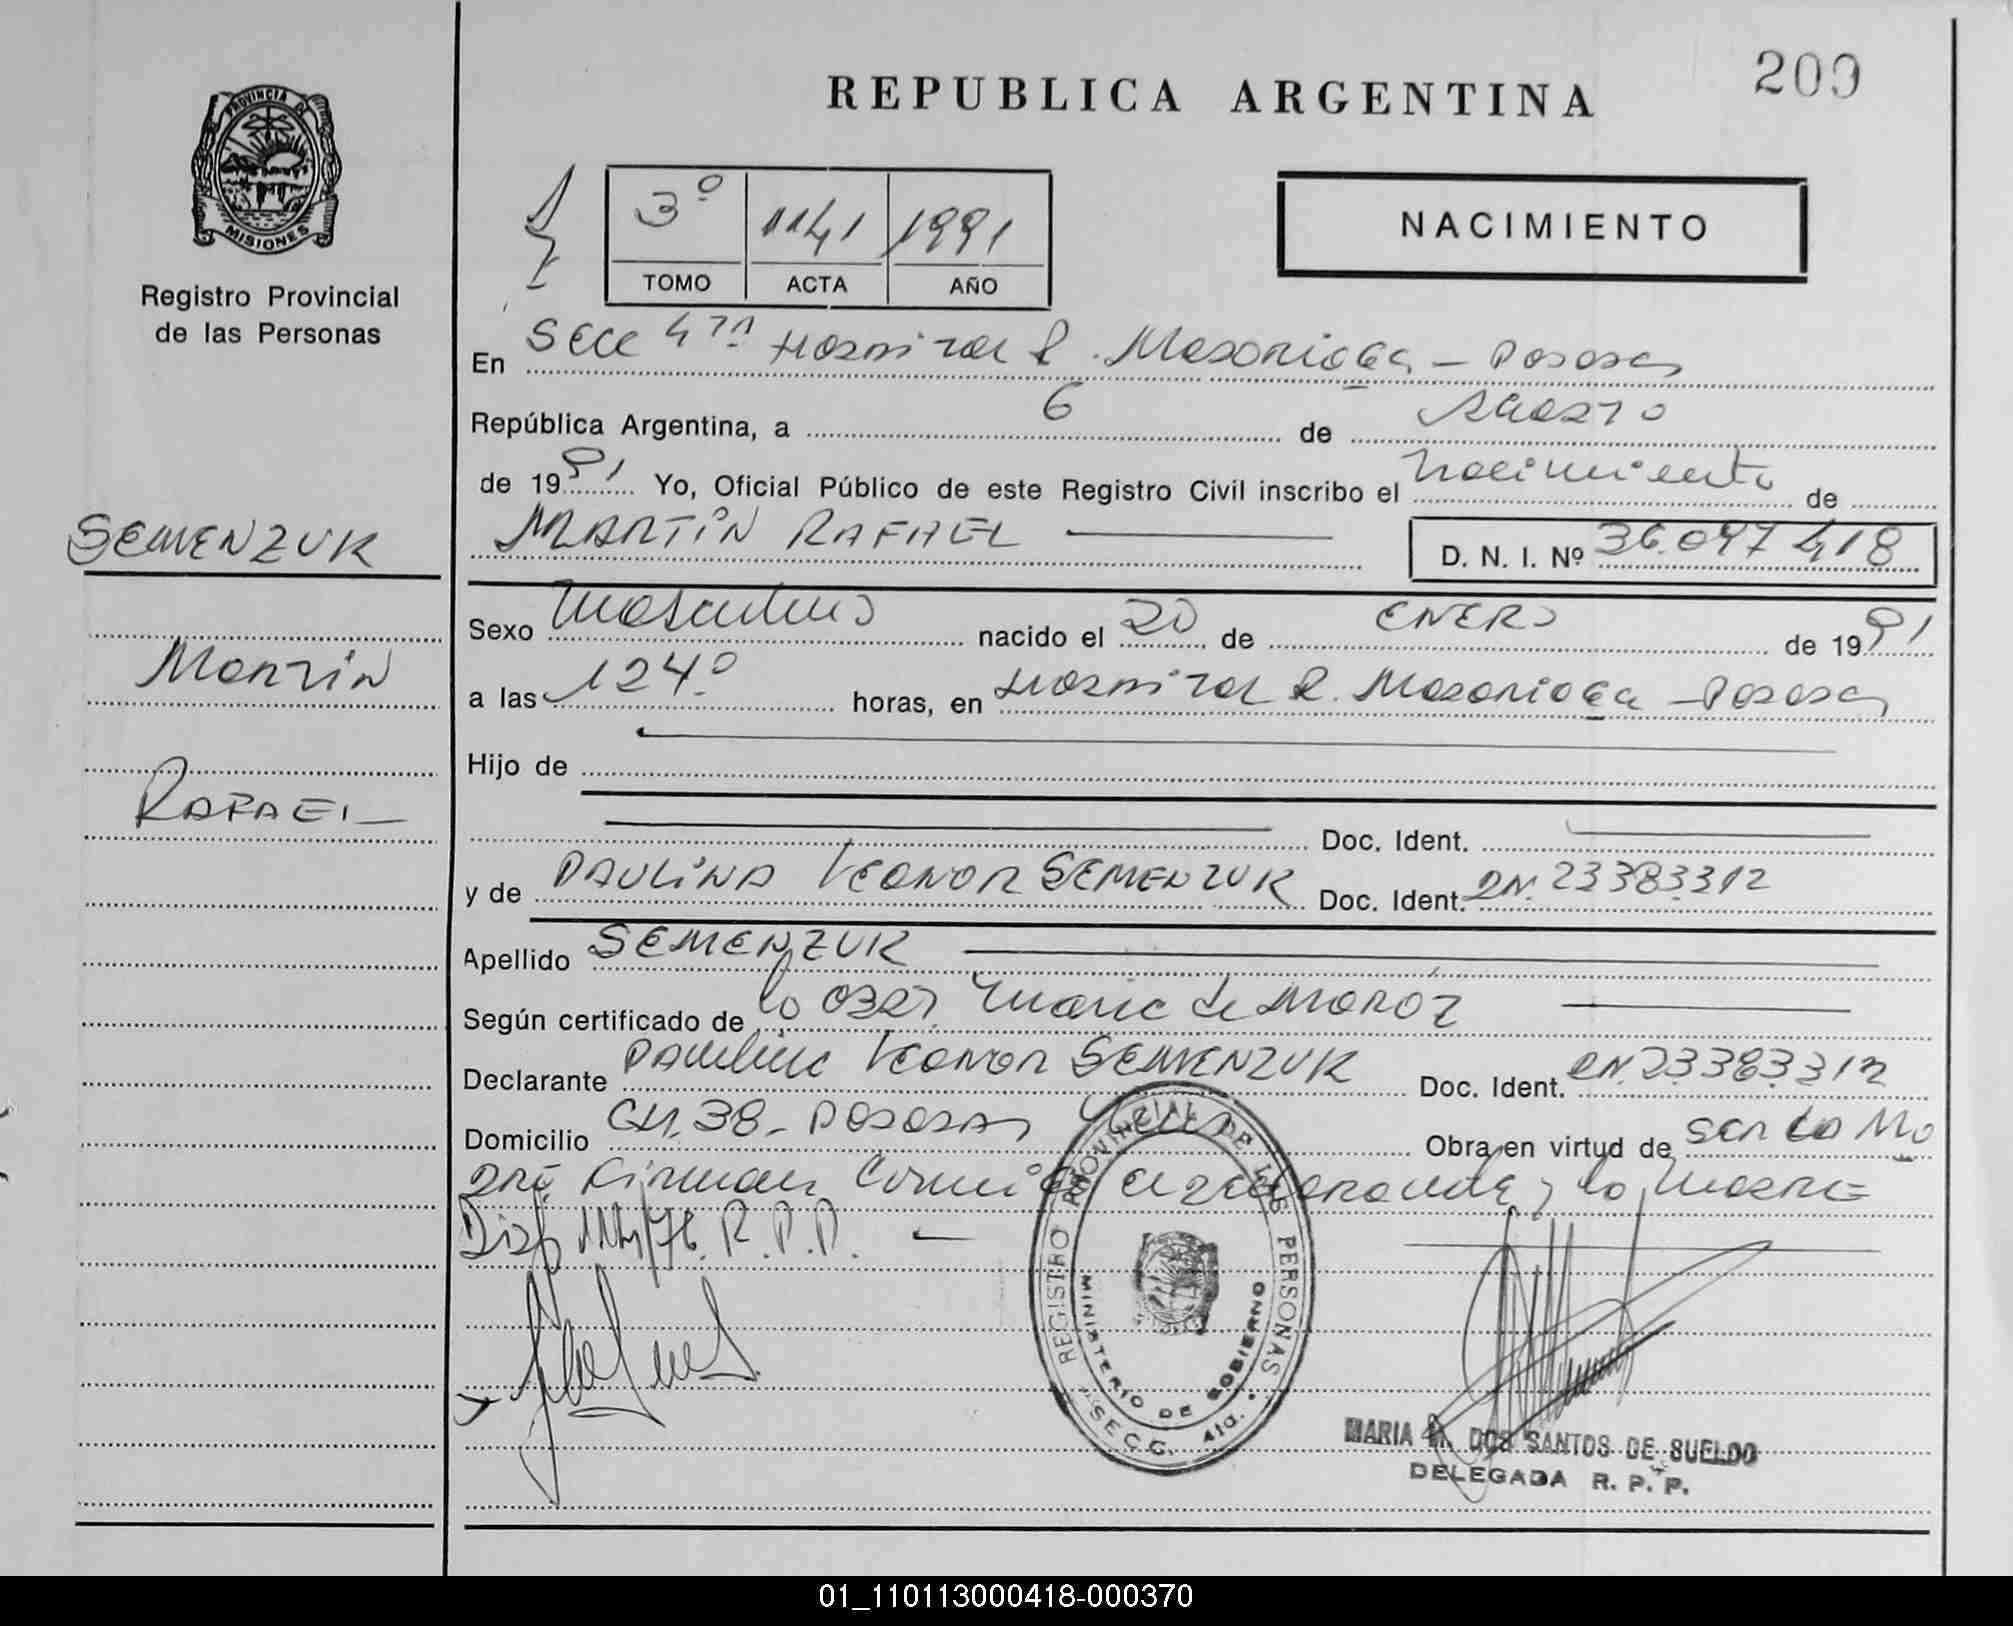 REPUBLICA ARGENTINA
209
PROVINCIA DE
MISIONES
Registro Provincial
de las Personas
3º 1141 1991
TOMO ACTA AÑO
NACIMIENTO
En Secc 4ta Hospital R. Madariaga - Posadas
República Argentina, a 6 de Agosto
de 1991 Yo, Oficial Público de este Registro Civil inscribo el nacimiento de
MARTIN RAFAEL
D. N. I. Nº 36.097.418
SEMENZUK
Martin
RAFAEL
Sexo Masculino nacido el 20 de ENERO de 1991
a las 1240 horas, en Hospital R. Madariaga - Posadas
Hijo de
Doc. Ident.
y de PAULINA LEONOR SEMENZUK Doc. Ident. DN. 23383312
Apellido SEMENZUK
Según certificado de la Obst. Maria de Moroz
Declarante Paulina Leonor SEMENZUK Doc. Ident. DN. 23383312
Domicilio CH. 38 - Posadas Obra en virtud de ser la Ma
dre. Firman la madre
Disp. /76. R.P.P.
REGISTRO PROVINCIAL DE LAS PERSONAS
MINISTERIO DE GOBIERNO
SECC. 4ta.
MARIA DOS SANTOS DE SUELDO
DELEGADA R. P. P.
01_110113000418-000370